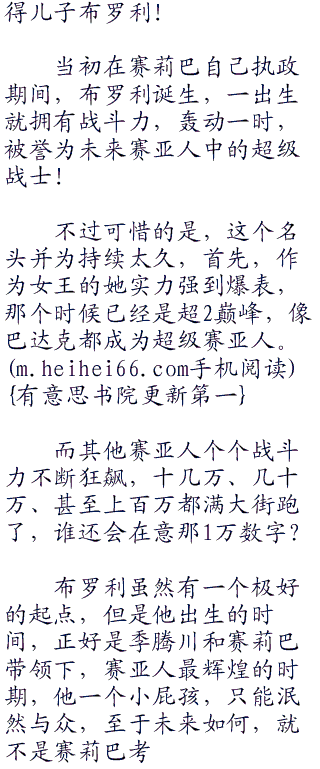 得儿子布罗利！
当初在赛莉巴自己执政
期间，布罗利诞生，一出生
就拥有战斗力，轰动一时，
被誉为未来赛亚人中的超级
战士！
不过可惜的是，这个名
头并为持续太久，首先，作
为女王的她实力强到爆表，
那个时候已经是超2巅峰，像
巴达克都成为超级赛亚人。
(m.heihei66.com手机阅读)
{有意思书院更新第一}
而其他赛亚人个个战斗
力不断狂飙，十几万、几十
万、甚至上百万都满大街跑
了，谁还会在意那1万数字？
布罗利虽然有一个极好
的起点，但是他出生的时
间，正好是季腾川和赛莉巴
带领下，赛亚人最辉煌的时
期，他一个小屁孩，只能泯
然与众，至于未来如何，就
不是赛莉巴考